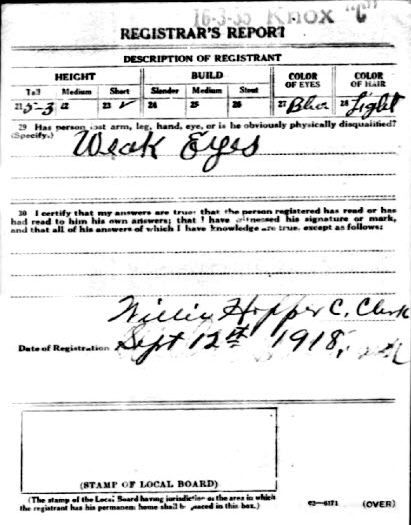 16-3-35 Knox "C"
REGISTRAR'S REPORT
DESCRIPTION OF REGISTRANT
HEIGHT BUILD COLOR OF EYES COLOR OF HAIR
Tall Medium Short Slender Medium Stout
21 5-3 22 23 ✓ 24 25 26 27 Blue 28 Light
29 Has person lost arm, leg, hand, eye, or is he obviously physically disqualified?
(Specify.) Weak Eyes
30 I certify that my answers are true; that the person registered has read or has
had read to him his own answers; that I have witnessed his signature or mark,
and that all of his answers of which I have knowledge are true, except as follows:
Willie Hopper C. Clerk
Date of Registration Sept 12th 1918,
(STAMP OF LOCAL BOARD)
(The stamp of the Local Board having jurisdiction of the area in which
the registrant has his permanent home shall be placed in this box.)
03-6171 (OVER)